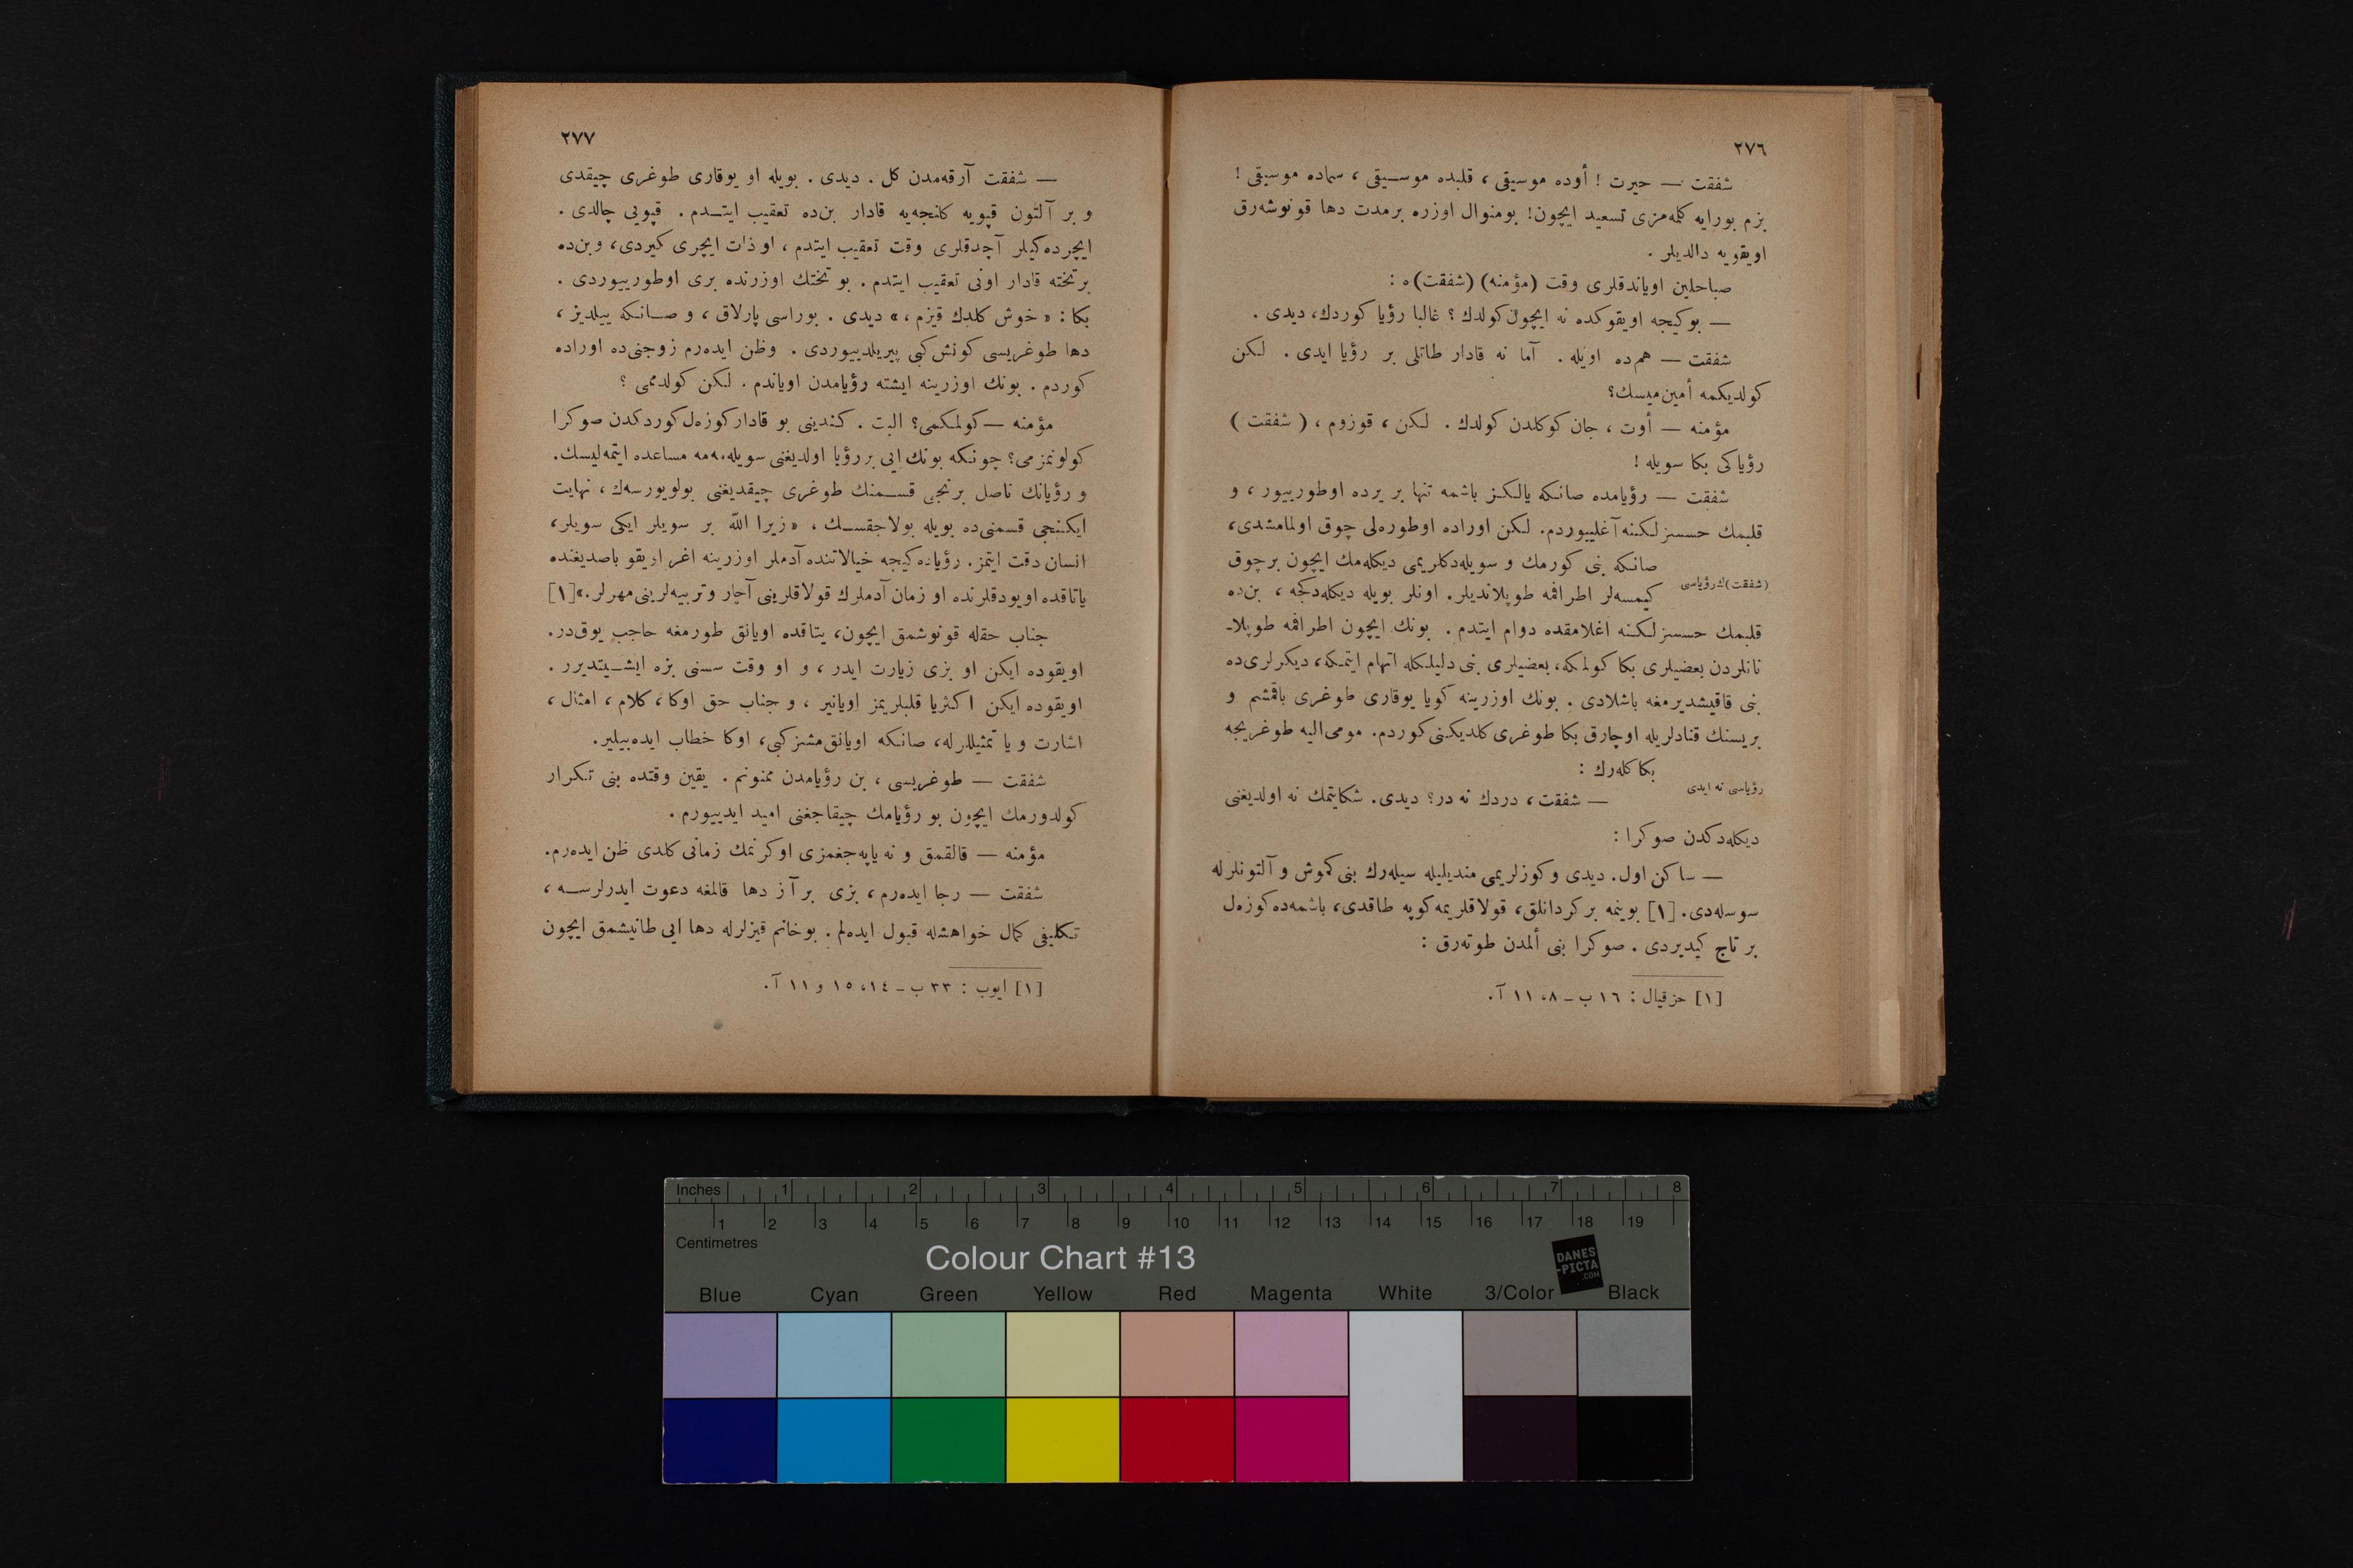 ٢٧٦
شفقت — حيرت ! أوده موسيقى ، قلبده موسيقى ، سماده موسيقى !
بزم بورايه كله‌مزى تسعيد ايچون! بومنوال اوزره برمدت دها قونوشه‌رق
اويقويه دالديلر .
صباحلين اوياندقلرى وقت (مؤمنه) (شفقت)ه :
— بوكيجه اويقوكده نه ايچون كولدك ؟ غالبا رؤيا كوردك، ديدى .
شفقت — هم‌ده اويله . آما نه قادار طاتلى بر رؤيا ايدى . لكن
كولديكمه أمين‌ميسك؟
مؤمنه — أوت ، جان كوكلدن كولدك . لكن ، قوزوم ، ( شفقت )
رؤياكى بكا سويله !
شفقت — رؤيامده صانكه يالكز باشمه تنها بر يرده اوطورييور ، و
قلبمك حسسزلكنه آغلييوردم. لكن اوراده اوطوره‌لى چوق اولمامشدى،
صانكه بنى كورمك و سويله‌دكلريمى ديكله‌مك ايچون برچوق
(شفقت)ك رؤياسى
كيمسه‌لر اطرافمه طوپلانديلر. اونلر بويله ديكله‌دكجه ، بن‌ده
قلبمك حسسزلكنه اغلامقده دوام ايتدم . بونك ايچون اطرافمه طوپلا-
نانلردن بعضيلرى بكا كولمكه، بعضيلرى بنى دليلكله اتهام ايتمكه، ديكرلرى‌ده
بنى قاقيشديرمغه باشلادى . بونك اوزرينه كويا يوقارى طوغرى باقمشم و
بريسنك قنادلريله اوچارق بكا طوغرى كلديكينى كوردم. مومى‌اليه طوغريجه
بكا كله‌رك :
رؤياسى نه ايدى
— شفقت ، دردك نه در؟ ديدى. شكايتمك نه اولديغنى
ديكله‌دكدن صوكرا :
— ساكن اول. ديدى و كوزلريمى منديليله سيله‌رك بنى كموش و آلتونلرله
سوسله‌دى. [١] بوينمه بر كردانلق، قولاقلريمه كوپه طاقدى، باشمه‌ده كوزه‌ل
بر تاج كيديردى . صوكرا بنى ألمدن طوته‌رق :
[١] حزقيال : ١٦ ب - ٨، ١١ آ.
٢٧٧
— شفقت آرقه‌مدن كل . ديدى . بويله او يوقارى طوغرى چيقدى
و بر آلتون قپويه كلنجه‌يه قادار بن‌ده تعقيب ايتدم . قپويى چالدى .
ايچرده‌كيلر آچدقلرى وقت تعقيب ايتدم ، او ذات ايچرى كيردى، و بن‌ده
بر تخته قادار اونى تعقيب ايتدم . بو تختك اوزرنده برى اوطورييوردى .
بكا : « خوش كلدك قيزم ،» ديدى . بوراسى پارلاق ، و صانكه ييلديز ،
دها طوغريسى كونش كبى پيريلدييوردى . وظن ايده‌رم زوجنى‌ده اوراده
كوردم . بونك اوزرينه ايشته رؤيامدن اوياندم . لكن كولدممى ؟
مؤمنه — كولمكمى؟ البت . كندينى بو قادار كوزه‌ل كوردكدن صوكرا
كولونمزمى؟ چونكه بونك ايى بر رؤيا اولديغنى سويله‌مه‌مه مساعده ايتمه‌ليسك.
و رؤيانك ناصل برنجى قسمنك طوغرى چيقديغنى بولويورسه‌ك ، نهايت
ايكنجى قسمنى‌ده بويله بولاجقسك ، «زيرا اللّه بر سويلر ايكى سويلر،
انسان دقت ايتمز. رؤياده كيجه خيالاتنده آدملر اوزرينه اغر اويقو باصديغنده
ياتاقده اويودقلرنده او زمان آدملرك قولاقلرينى آچار و تربيه‌لرينى مهرلر.»[١]
جناب حقله قونوشمق ايچون، يتاقده اويانق طورمغه حاجب يوق‌در.
اويقوده ايكن او بزى زيارت ايدر ، و او وقت سسنى بزه ايشيتديرر .
اويقوده ايكن اكثريا قلبلريمز اويانير ، و جناب حق اوكا ، كلام ، امثال ،
اشارت و يا تمثيللرله، صانكه اويانق‌مشز كبى، اوكا خطاب ايده‌بيلير.
شفقت — طوغريسى ، بن رؤيامدن ممنونم . يقين وقتده بنى تكرار
كولدورمك ايچون بو رؤيامك چيقاجغنى اميد ايدييورم .
مؤمنه — قالقمق و نه ياپه‌جغمزى اوكرنمك زمانى كلدى ظن ايده‌رم.
شفقت — رجا ايده‌رم ، بزى بر آز دها قالمغه دعوت ايدرلرسه ،
تكليفى كمال خواهشله قبول ايده‌لم . بوخانم قيزلرله دها ايى طانيشمق ايچون
[١] ايوب : ٣٣ ب - ١٤، ١٥ و ١١ آ.
Inches 1 2 3 4 5 6 7 8
1 2 3 4 5 6 7 8 9 10 11 12 13 14 15 16 17 18 19
Centimetres
Colour Chart #13
DANES
-PICTA
.COM
Blue Cyan Green Yellow Red Magenta White 3/Color Black